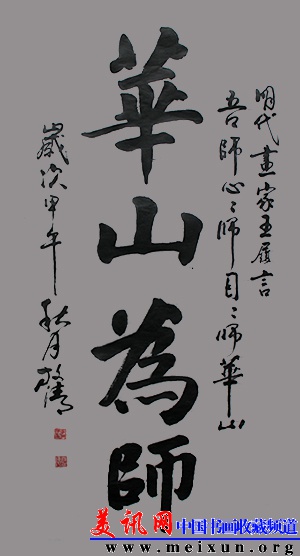 明代畫家王履言
吾師心〻師目〻師華山
華山為師
歲次甲午秋月
美讯网
中国书画收藏频道
www.meixun.org